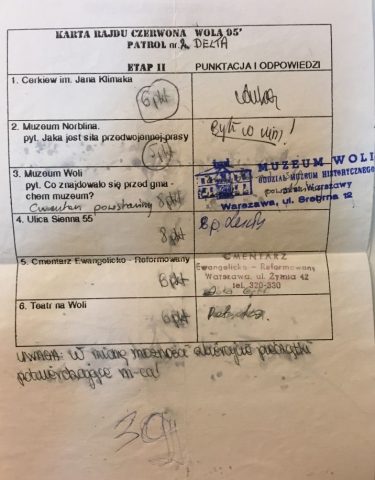 KARTA RAJDU CZERWONA WOLA 95'
PATROL nr. 2 DELTA
ETAP II PUNKTACJA I ODPOWIEDZI
1. Cerkiew im. Jana Klimaka
6 pkt
2. Muzeum Norblina. Byli w nim!
pyt. Jaka jest siła przedwojennej prasy
3. Muzeum Woli
pyt. Co znajdowało się przed gma-
chem muzeum?
Cmentarz powstańczy 8 pkt
MUZEUM WOLI
ODDZIAŁ MUZEUM HISTORYCZNEGO
m. st. Warszawy
Warszawa, ul. Srebrna 12
4. Ulica Sienna 55
8 pkt 8p
5. Cmentarz Ewangelicko - Reformowany
6 pkt
CMENTARZ
Ewangelicko - Reformowany
Warszawa, ul. Żytnia 42
tel. 320-330
6. Teatr na Woli
6 pkt
UWAGA: W miarę możności zbierajcie pieczątki
potwierdzające m-ca!
39